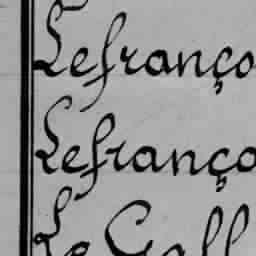 Lefranço
Lefranço
Le Gall